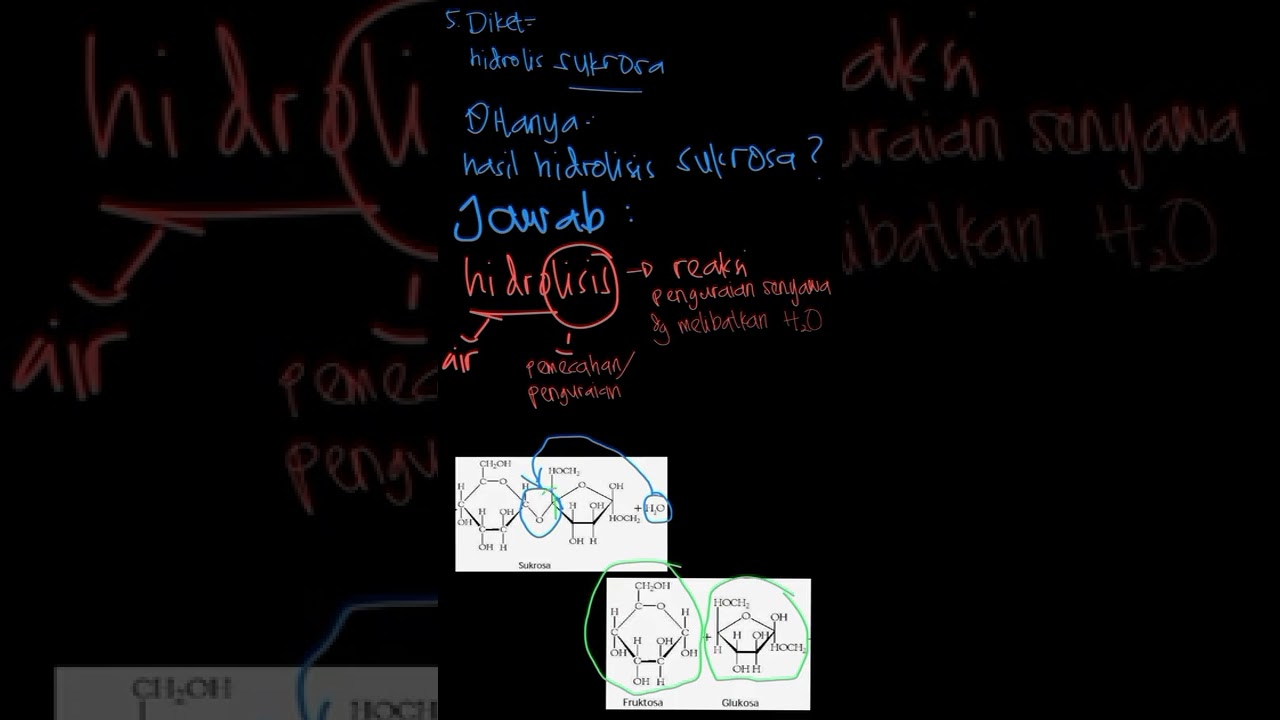 5. Diket=
hidrolis sukrosa
Ditanya:
hasil hidrolisis sukrosa?
Jawab:
hidrolisis → reaksi
penguraian senyawa
dg melibatkan H₂O
air
pemecahan/
penguraian
CH₂OH
HOCH₂
H C O H O OH
C C H OH + H₂O
OH H OH O HOCH₂
OH H OH H
Sukrosa
CH₂OH HOCH₂
C O O OH
H H
C C + H OH
OH H OH OH H HOCH₂
C C OH H
OH H
Fruktosa Glukosa